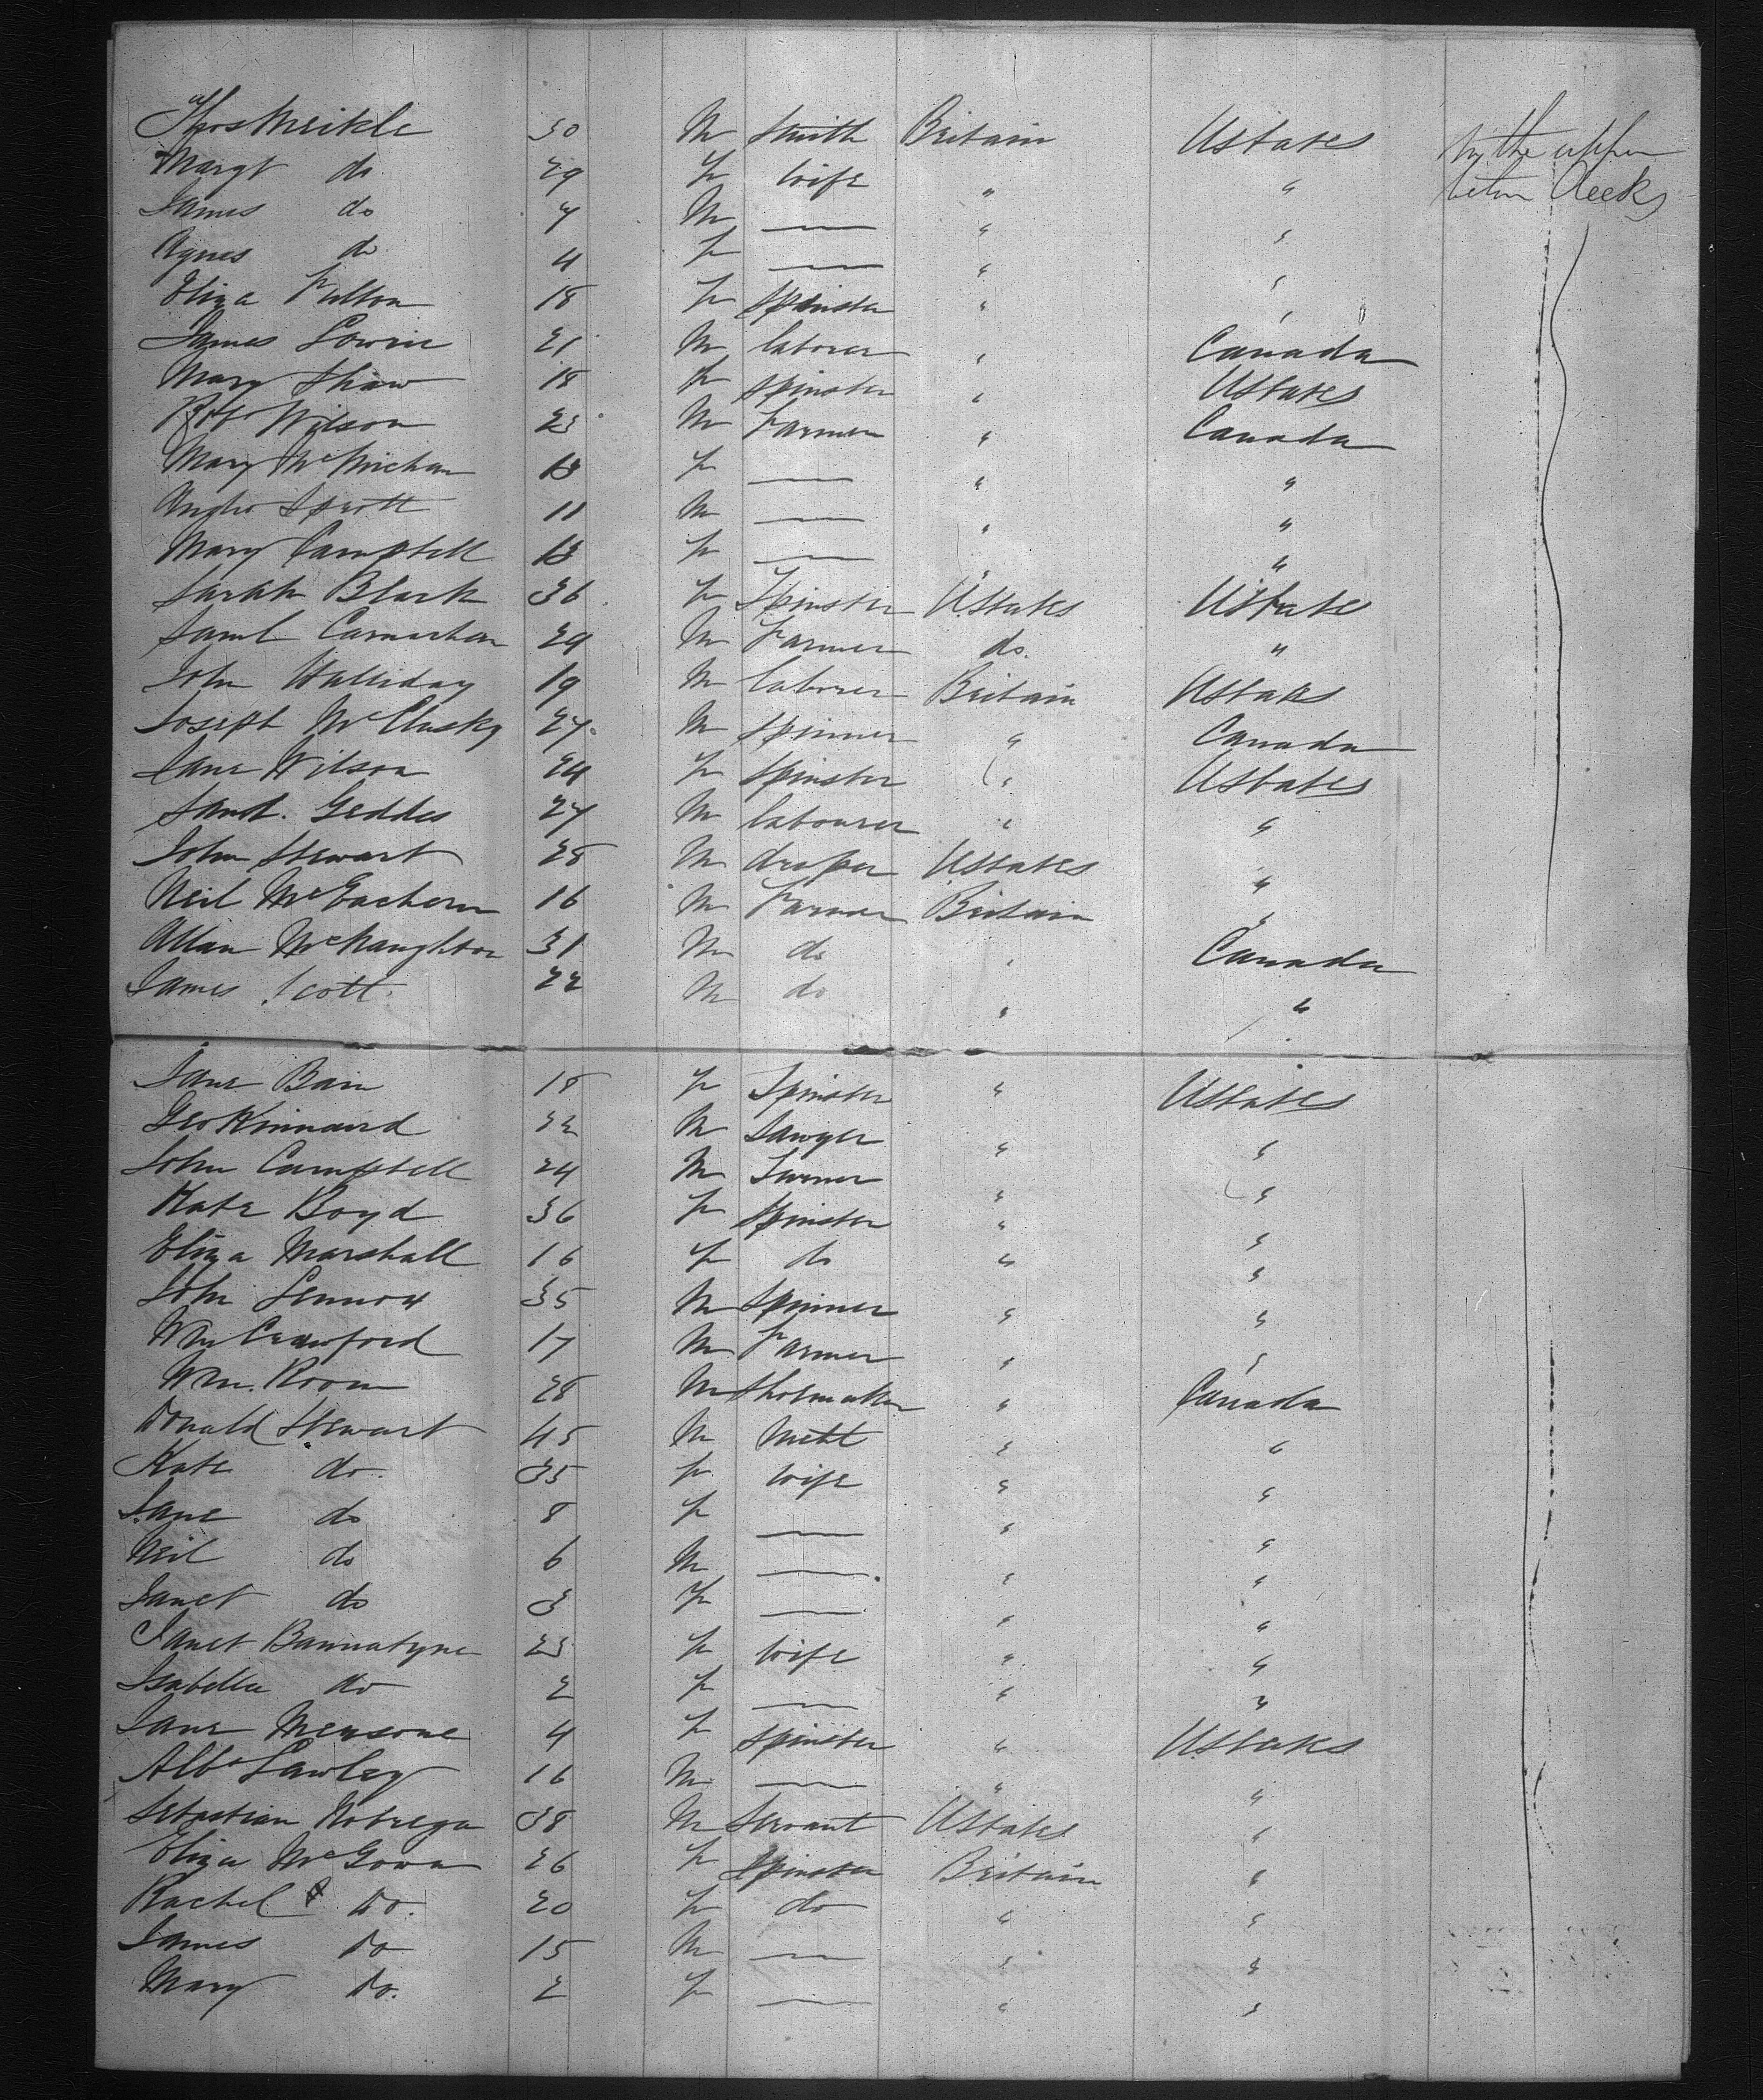 Thos Meikle 30 M Smith Britain UStates In the upper
Margt do 29 F Wife " " betwn Decks
James do 7 M — " "
Agnes do 4 F — " "
Eliza Fulton 18 F Spinster " "
James Lowrie 21 M laborer " Canada
Mary Shaw 18 F Spinster " UStates
Robt Wilson 23 M Farmer " Canada
Mary McMichan 13 F — " "
Andw Sprott 11 M — " "
Mary Campbell 13 F — " "
Sarah Black 36 F Spinster UStates UStates
Saml Carnochan 29 M Farmer do. "
John Halliday 19 M laborer Britain UStates
Joseph McClusky 27 M Spinner " Canada
Jane Wilson 24 F Spinster " UStates
Saml. Geddes 27 M labourer " "
John Stewart 28 M draper UStates "
Neil McEachern 16 M Farmer Britain "
Allan McNaughton 31 M do " Canada
James Scott 22 M do " "
Jane Bain 18 F Spinster " UStates
Geo Kinnaird 32 M Sawyer " "
John Campbell 24 M Turner " "
Kate Boyd 36 F Spinster " "
Eliza Marshall 16 F do " "
John Lennox 35 M Spinner " "
Wm Crawford 17 M Farmer " "
Wm. Room 28 M Shoemaker " Canada
Donald Stewart 45 M " "
Kate do. 35 F Wife " "
Jane do 8 F — " "
Neil do 6 M — " "
Janet do 3 F — " "
Janet Bannatyne 23 F Wife " "
Isabella do 2 F — " "
Jane 4 F Spinster " UStates
Albt Lawley 16 M — " "
Sebastian Nobrega 38 M Servant UStates "
Eliza McGowan 26 F Spinster Britain "
Rachel Do. 20 F do " "
James Do 15 M — " "
Mary Do. 2 F — " "